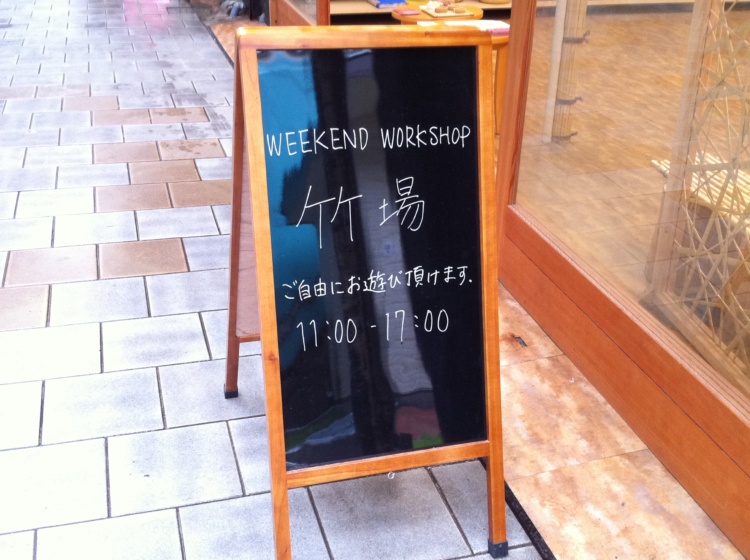 WEEKEND WORKSHOP
竹場
ご自由にお遊び頂けます.
11:00 -17:00